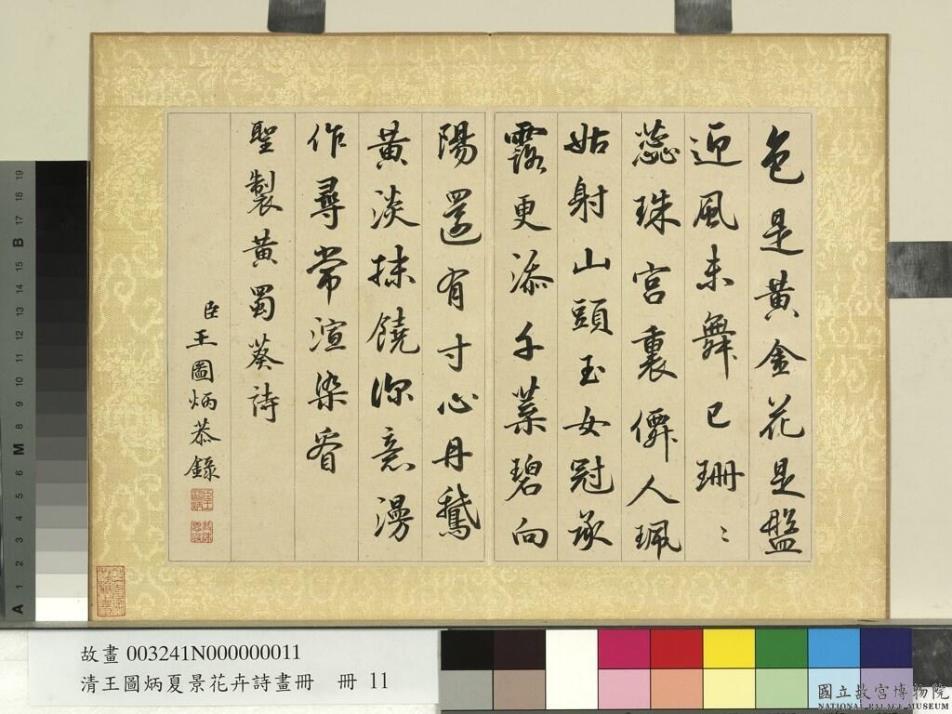 色是黃金花是盤
迎風未舞已珊〻
蕊珠宮裏僊人珮
姑射山頭玉女冠承
露更添千葉碧向
陽還有寸心丹鵝
黃淡抹饒深意漫
作尋常渲染看
聖製黃蜀葵詩
臣王圖炳恭錄
A 1 2 3 4 5 6 M 8 9 10 11 12 13 14 15 B 17 18 19
故畫 003241N000000011
清王圖炳夏景花卉詩畫冊 冊 11
國立故宮博物院
NATIONAL PALACE MUSEUM